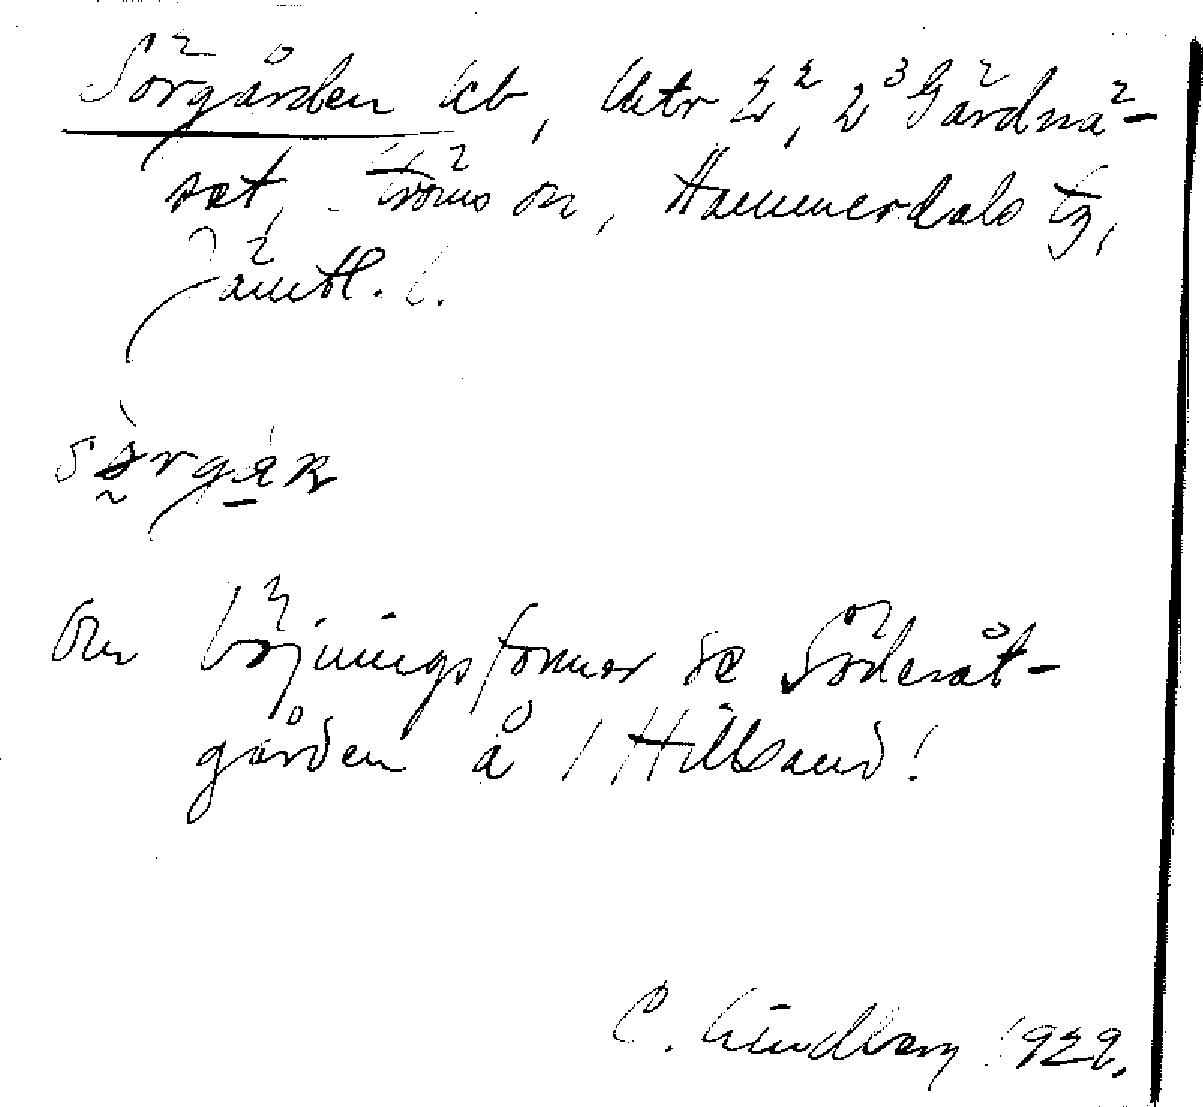 Sörgården kb, litr 2², 2³ Gårdnä-
set, Ströms sn, Hammerdals tg,
Jämtl. l.
Om böjningsformer se Söderåt-
gården å 1 Hillsand!
C. Lindberg 1929.